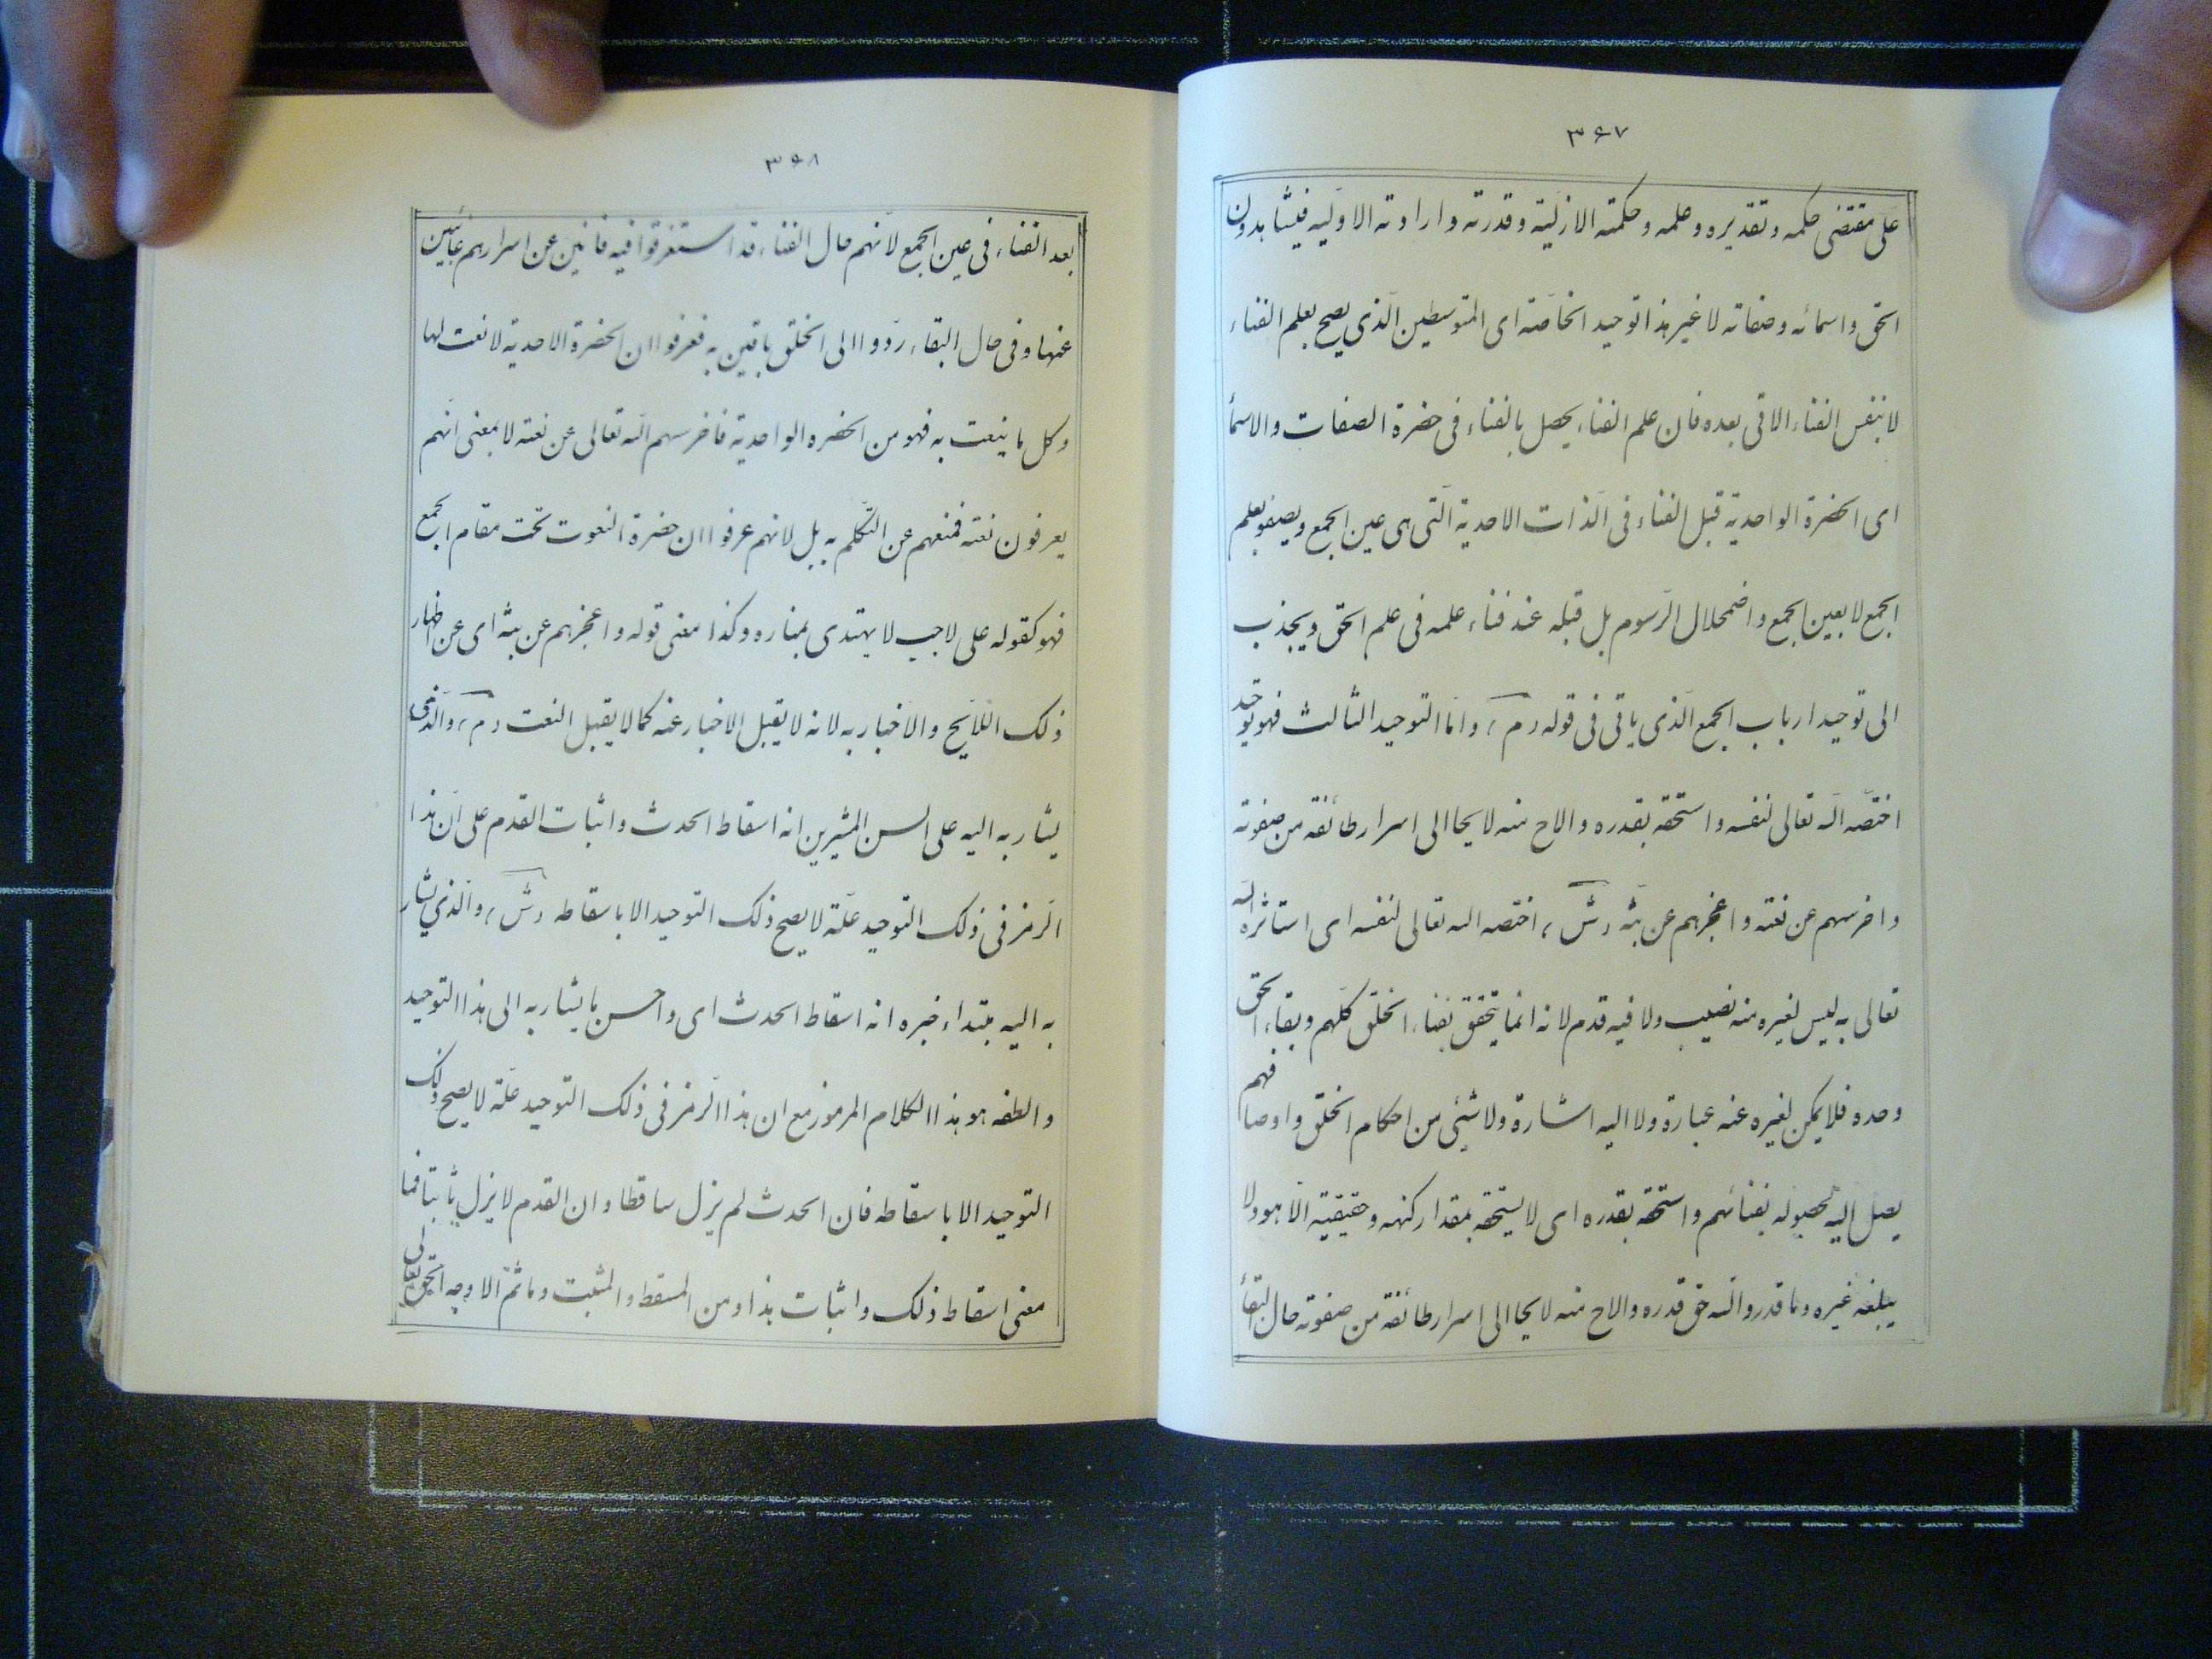 ۳۶۷
علی مقتضی حکمه و تقدیره و علمه و حکمته الازلیة و قدرته و ارادته الاولیه فیشاهدون
الحق و اسمائه و صفاته لا غیر هذا توحید الخاصة ای المتوسطین الّذی یصح بعلم الفناء
لا بنفس الفناء الاتی بعده فان علم الفناء یحصل بالفناء فی حضرة الصفات و الاسماء
ای الحضرة الواحدیة قبل الفناء فی الذّات الاحدیة الّتی هی عین الجمع و یصفو بعلم
الجمع لا بعین الجمع و اضمحلال الرّسوم بل قبله عند فناء علمه فی علم الحق و یجذب
الی توحید ارباب الجمع الّذی یاتی فی قوله (م) و امّا التوحید الثالث فهو توحید
اختصّه الله تعالی لنفسه و استحقه بقدره و الاح منه لایحا الی اسرار طائفة من صفوته
و اخرسهم عن نعته و اعجزهم عن بثّه (ش) اختصه الله تعالی لنفسه ای استاثره الله
تعالی به لیس لغیره منه نصیب و لا فیه قدم لانه انما یتحقق بفناء الخلق کلّهم و بقاء الحق
وحده فلا یمکن لغیره عنه عبارة و لا الیه اشارة و لا شیٔی من احکام الخلق و اوصافهم
یصل الیه لحصوله بفنائهم و استحقه بقدره ای لا یستحقه بمقدار کنهه و حقیقیة الّا هو و لا
یبلغه غیره و ما قدروا الله حق قدره و الاح منه لایحا الی اسرار طائفة من صفوته حال البقاء
۳۶۸
بعد الفناء فی عین الجمع لانّهم حال الفناء قد استغرقوا فیه فانین عن اسرارهم غائبین
عنها و فی حال البقاء ردّوا الی الخلق باقین به فعرفوا ان الحضرة الاحدیة لا نعت لها
و کل ما ینعت به فهو من الحضره الواحدیة فاخرسهم الله تعالی عن نعته لا بمعنی انّهم
یعرفون نعته فمنعهم عن التّکلم به بل لانهم عرفوا ان حضرة النعوت تحت مقام الجمع
فهو کقوله علی لاحب لا یهتدی بمناره و کذا معنی قوله و اعجزهم عن بثه ای عن اظهار
ذلک اللّایح و الاخبار به لانه لا یقبل الاخبار عنه کما لا یقبل النعت (م) و الّذی
یشار به الیه علی السن المشیرین انه اسقاط الحدث و اثبات القدم علی انّ هذا
الرّمز فی ذلک التوحید علّة لا یصح ذلک التوحید الا باسقاطه (ش) و الّذی یشار
به الیه مبتداء خبره انه اسقاط الحدث ای و احسن ما یشار به الی هذا التوحید
و الطفه هو هذا الکلام المرموز مع ان هذا الرّمز فی ذلک التوحید علّة لا یصح ذلک
التوحید الا باسقاطه فان الحدث لم یزل ساقطا و ان القدم لا یزل ثابتا فما
معنی اسقاط ذلک و اثبات هذا و من المسقط و المثبت و ما ثمّ الا وجه الحق تعالی